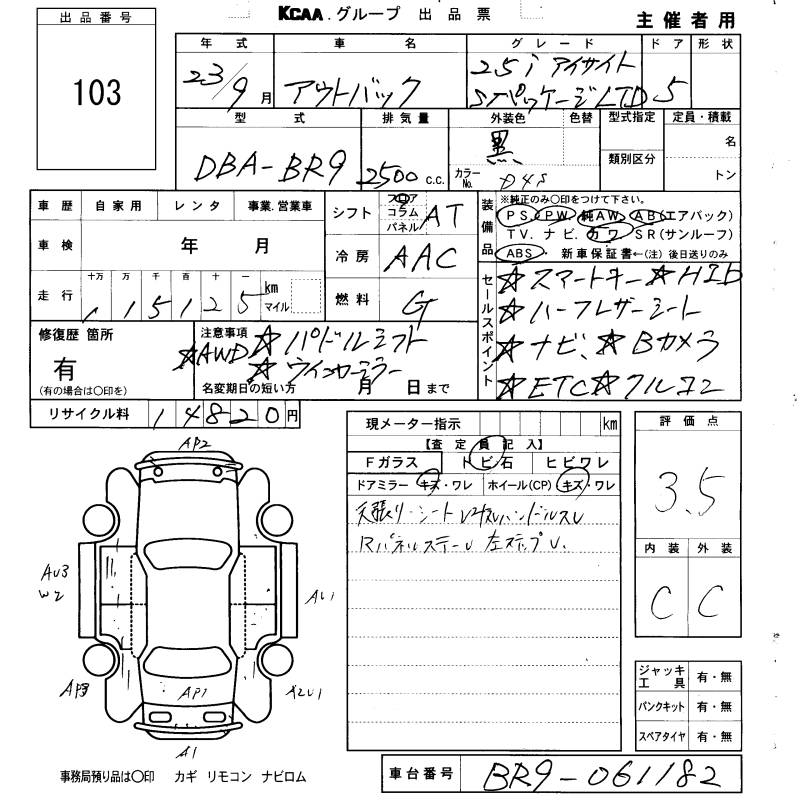 KCAA.グループ 出品票
主催者用
出品番号
103
年式 車名 グレード ドア 形状
23/9月 アウトバック 2.5i アイサイト 5
SパッケージLTD
型式 排気量 外装色 色替 型式指定 定員・積載
DBA-BR9 2500 c.c. 黒 名
カラーNo. D4S 類別区分 トン
車歴 自家用 レンタ 事業.営業車
車検 年 月
走行 十万 万 千 百 十 一
1 1 5 1 2 5 km マイル
シフト フロア コラム パネル AT
冷房 AAC
燃料 G
装備品
※純正のみ○印をつけて下さい。
PS PW 純AW AB(エアバック)
TV. ナビ. カワ SR(サンルーフ)
ABS・ 新車保証書←(注) 後日送りのみ
セールスポイント
☆スマートキー ☆HID
☆ハーフレザーシート
☆ナビ、☆Bカメラ
☆ETC ☆クルコン
修復歴 箇所
有
(有の場合は○印を)
注意事項 ☆パドルシフト
☆AWD ☆ウインカーミラー
名変期日の短い方 月 日まで
リサイクル料 14820円
現メーター指示 km
【査定員記入】
Fガラス トビ石 ヒビワレ
ドアミラー キズ・ワレ ホイール(CP) キズ・ワレ
天張り・シート ハンドルスレ
Rパネルステー 左ステップU.
評価点
3.5
内装 外装
C C
AP2
AU3
W2
AU1
AP3
AP1
A2U1
A1
ジャッキ工具 有・無
パンクキット 有・無
スペアタイヤ 有・無
事務局預り品は○印 カギ リモコン ナビロム
車台番号 BR9-061182